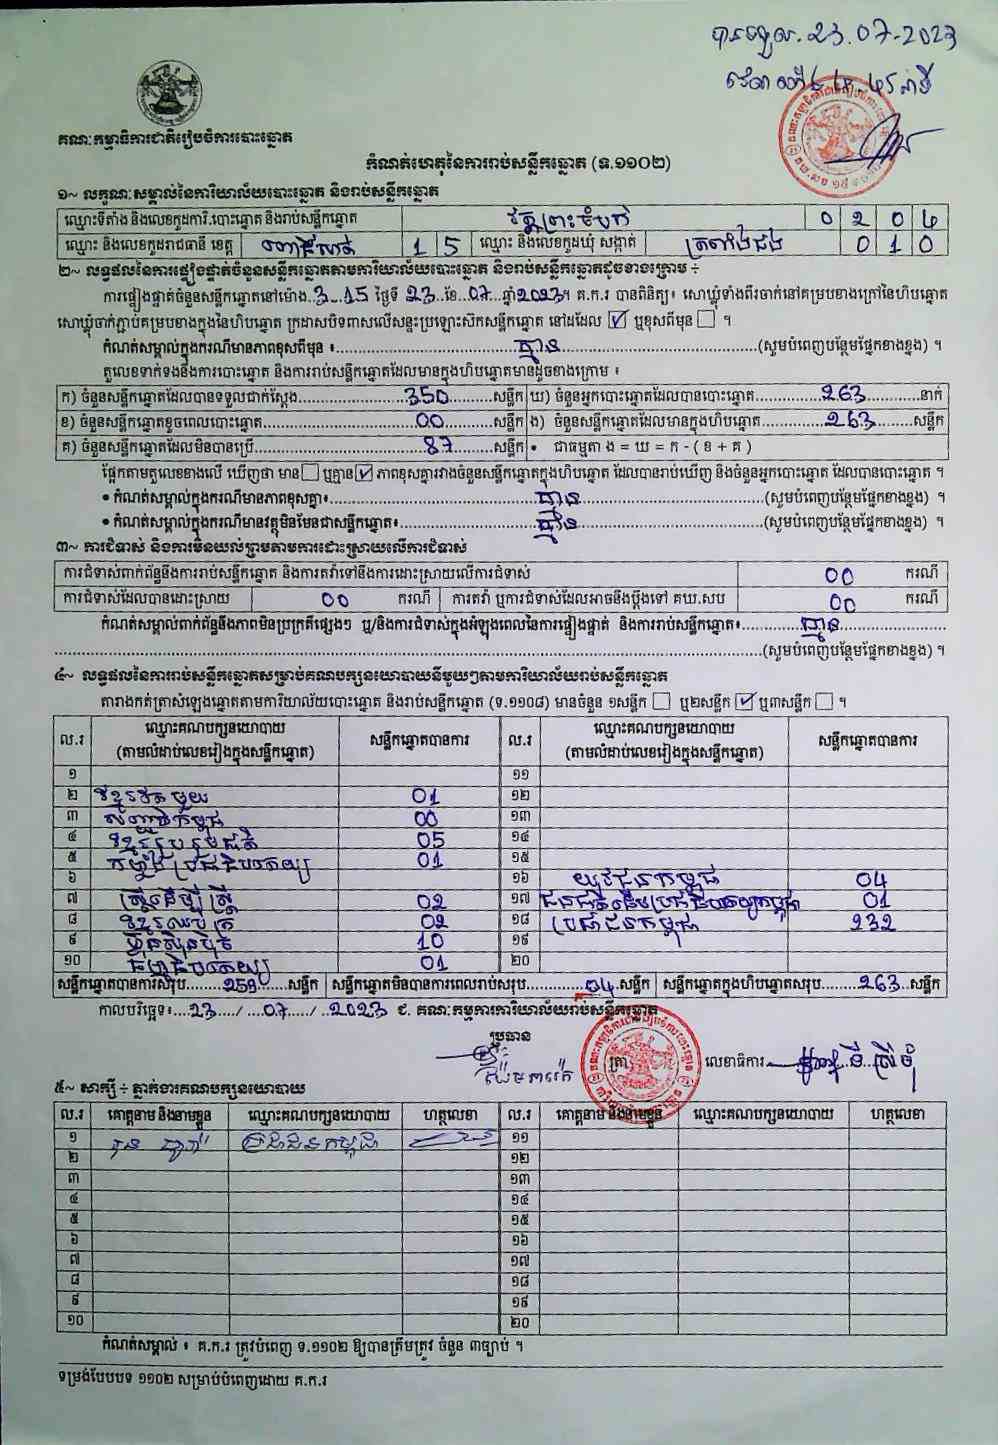 បានទទួល. 23.07-2023
គណៈកម្មាធិការជាតិរៀបចំការបោះឆ្នោត
កំណត់ហេតុនៃការរាប់សន្លឹកឆ្នោត (ទ.១១០២)
១~ លក្ខណៈសម្គាល់នៃការិយាល័យបោះឆ្នោត និងរាប់សន្លឹកឆ្នោត
ឈ្មោះទីតាំង និងលេខកូដការិ.បោះឆ្នោត និងរាប់សន្លឹកឆ្នោត វត្តព្រះ 0 2 0 4
ឈ្មោះ និងលេខកូដរាជធានី ខេត្ត ពោធិ៍សាត់ 1 5 ឈ្មោះ និងលេខកូដឃុំ សង្កាត់ ត្រពាំងជង 0 1 0
២~ លទ្ធផលនៃការផ្ទៀងផ្ទាត់ចំនួនសន្លឹកឆ្នោតតាមការិយាល័យបោះឆ្នោត និងរាប់សន្លឹកឆ្នោតដូចខាងក្រោម ÷
ការផ្ទៀងផ្ទាត់ចំនួនសន្លឹកឆ្នោតនៅម៉ោង..3-15 ថ្ងៃទី 23 ខែ..07..ឆ្នាំ2023។ គ.ក.រ បានពិនិត្យ៖ សោឃ្លុំទាំងពីរចាក់នៅគម្របខាងក្រៅនៃហិបឆ្នោត
សោឃ្លុំចាក់ភ្ជាប់គម្របខាងក្នុងនៃហិបឆ្នោត ក្រដាសបិទពាសលើសន្ទះប្រឡោះស៊កសន្លឹកឆ្នោត នៅដដែល ☑ ឬខុសពីមុន ☐ ។
កំណត់សម្គាល់ក្នុងករណីមានភាពខុសពីមុន ៖ គ្មាន (សូមបំពេញបន្ថែមផ្នែកខាងខ្នង) ។
តួលេខទាក់ទងនឹងការបោះឆ្នោត និងការរាប់សន្លឹកឆ្នោតដែលមានក្នុងហិបឆ្នោតមានដូចខាងក្រោម ៖
ក) ចំនួនសន្លឹកឆ្នោតដែលបានទទួលជាក់ស្តែង 350 សន្លឹក ឃ) ចំនួនអ្នកបោះឆ្នោតដែលបានបោះឆ្នោត 263 នាក់
ខ) ចំនួនសន្លឹកឆ្នោតខូចពេលបោះឆ្នោត 00 សន្លឹក ង) ចំនួនសន្លឹកឆ្នោតដែលមានក្នុងហិបឆ្នោត 263 សន្លឹក
គ) ចំនួនសន្លឹកឆ្នោតដែលមិនបានប្រើ 87 សន្លឹក • ជាធម្មតា ង = ឃ = ក - ( ខ + គ )
ផ្អែកតាមតួលេខខាងលើ ឃើញថា មាន ☐ ឬគ្មាន ☑ ភាពខុសគ្នារវាងចំនួនសន្លឹកឆ្នោតក្នុងហិបឆ្នោត ដែលបានរាប់ឃើញ និងចំនួនអ្នកបោះឆ្នោត ដែលបានបោះឆ្នោត ។
• កំណត់សម្គាល់ក្នុងករណីមានភាពខុសគ្នា៖ គ្មាន (សូមបំពេញបន្ថែមផ្នែកខាងខ្នង) ។
• កំណត់សម្គាល់ក្នុងករណីមានវត្ថុមិនមែនជាសន្លឹកឆ្នោត៖ គ្មាន (សូមបំពេញបន្ថែមផ្នែកខាងខ្នង) ។
៣~ ការជំទាស់ និងការមិនយល់ព្រមតាមការដោះស្រាយលើការជំទាស់
ការជំទាស់ពាក់ព័ន្ធនឹងការរាប់សន្លឹកឆ្នោត និងការតវ៉ាទៅនឹងការដោះស្រាយលើការជំទាស់ 00 ករណី
ការជំទាស់ដែលបានដោះស្រាយ 00 ករណី ការតវ៉ា ឬការជំទាស់ដែលអាចនឹងប្តឹងទៅ គឃ.សប 00 ករណី
កំណត់សម្គាល់ពាក់ព័ន្ធនឹងភាពមិនប្រក្រតីផ្សេងៗ ឬ/និងការជំទាស់ក្នុងអំឡុងពេលនៃការផ្ទៀងផ្ទាត់ និងការរាប់សន្លឹកឆ្នោត៖ គ្មាន
(សូមបំពេញបន្ថែមផ្នែកខាងខ្នង) ។
៤~ លទ្ធផលនៃការរាប់សន្លឹកឆ្នោតសម្រាប់គណបក្សនយោបាយនីមួយៗតាមការិយាល័យរាប់សន្លឹកឆ្នោត
តារាងកត់ត្រាសំឡេងឆ្នោតតាមការិយាល័យបោះឆ្នោត និងរាប់សន្លឹកឆ្នោត (ទ.១១០៨) មានចំនួន ១សន្លឹក ☐ ឬ២សន្លឹក ☑ ឬ៣សន្លឹក ☐ ។
ល.រ ឈ្មោះគណបក្សនយោបាយ (តាមលំដាប់លេខរៀងក្នុងសន្លឹកឆ្នោត) សន្លឹកឆ្នោតបានការ ល.រ ឈ្មោះគណបក្សនយោបាយ (តាមលំដាប់លេខរៀងក្នុងសន្លឹកឆ្នោត) សន្លឹកឆ្នោតបានការ
១ ១១
២ ខ្មែរតែមួយ 01 ១២
៣ សញ្ជាតិកម្ពុជា 00 ១៣
៤ ខ្មែររួបរួមជាតិ 05 ១៤
៥ កម្លាំងប្រជាធិបតេយ្យ 01 ១៥
៦ ១៦ យុវជនកម្ពុជា 04
៧ ស្ត្រីដើម្បីស្ត្រី 02 ១៧ ជនជាតិដើមប្រជាធិបតេយ្យកម្ពុជា 01
៨ 02 ១៨ ប្រជាជនកម្ពុជា 232
៩ ហ្វ៊ុនស៊ិនប៉ិច 10 ១៩
១០ ធម្មាធិបតេយ្យ 01 ២០
សន្លឹកឆ្នោតបានការសរុប 259 សន្លឹក សន្លឹកឆ្នោតមិនបានការពេលរាប់សរុប 04 សន្លឹក សន្លឹកឆ្នោតក្នុងហិបឆ្នោតសរុប 263 សន្លឹក
កាលបរិច្ឆេទ៖ 23 / 07 / 2023 ជ. គណៈកម្មការការិយាល័យរាប់សន្លឹកឆ្នោត
ប្រធាន
(ត្រា) លេខាធិការ
៥~ សាក្សី ÷ ភ្នាក់ងារគណបក្សនយោបាយ
ល.រ គោត្តនាម និងនាមខ្លួន ឈ្មោះគណបក្សនយោបាយ ហត្ថលេខា ល.រ គោត្តនាម និងនាមខ្លួន ឈ្មោះគណបក្សនយោបាយ ហត្ថលេខា
១ ប្រជាជនកម្ពុជា ១១
២ ១២
៣ ១៣
៤ ១៤
៥ ១៥
៦ ១៦
៧ ១៧
៨ ១៨
៩ ១៩
១០ ២០
កំណត់សម្គាល់ ៖ គ.ក.រ ត្រូវបំពេញ ទ.១១០២ ឱ្យបានត្រឹមត្រូវ ចំនួន ៣ច្បាប់ ។
ទម្រង់បែបបទ ១១០២ សម្រាប់បំពេញដោយ គ.ក.រ